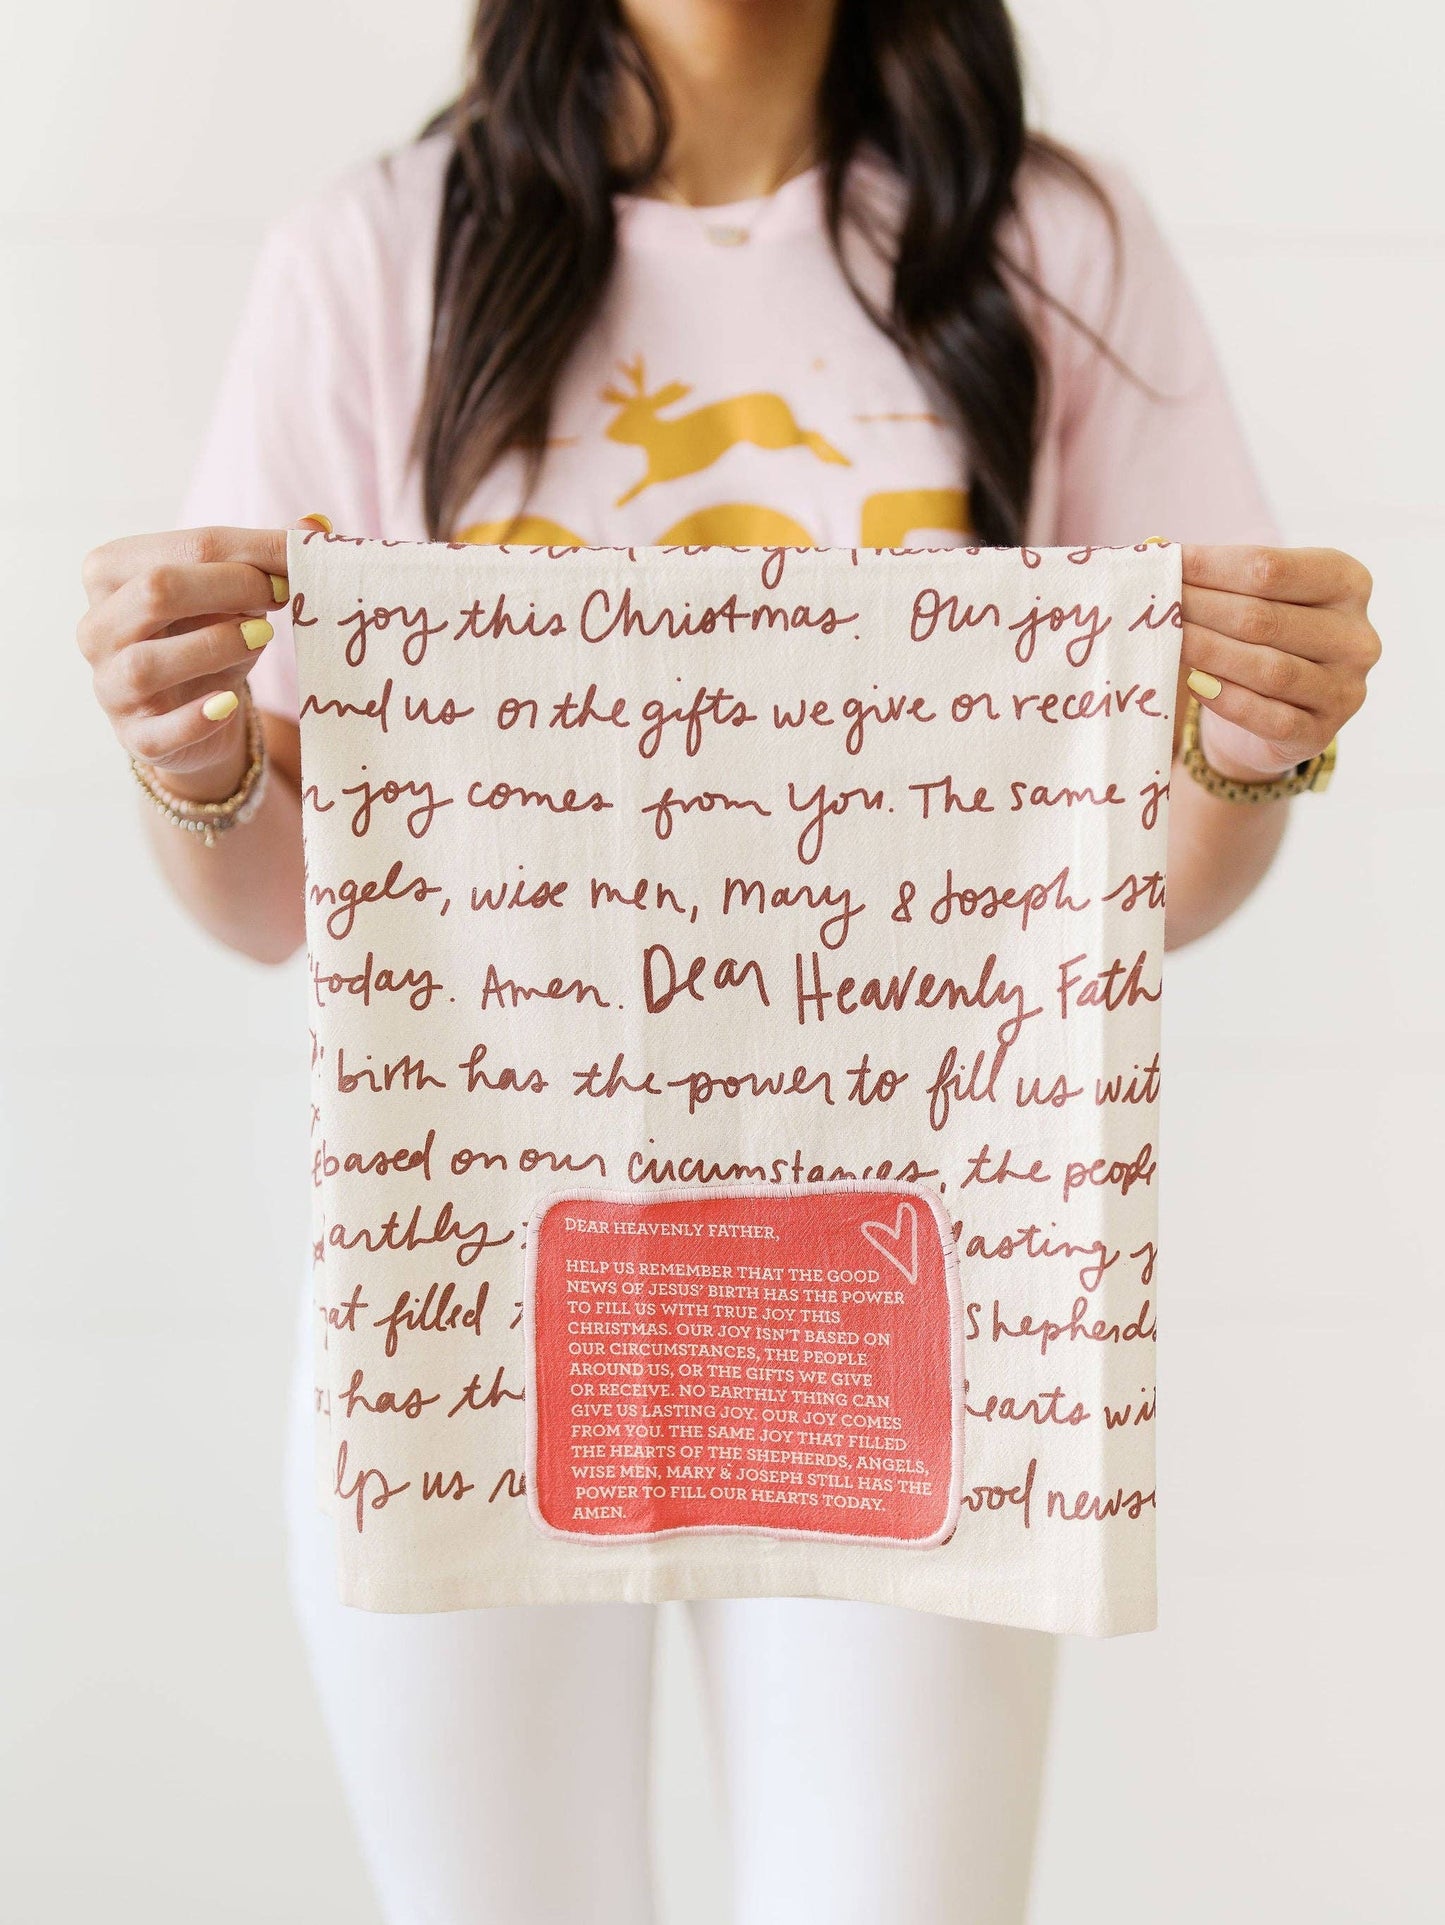 joy this Christmas. Our joy is
us or the gifts we give or receive.
joy comes from You. The same
wise men, Mary & Joseph
today. Amen. Dear Heavenly
birth has the power to fill us
based on our circumstances, the
filled
Shepherds
has
us
news
DEAR HEAVENLY FATHER,
HELP US REMEMBER THAT THE GOOD
NEWS OF JESUS' BIRTH HAS THE POWER
TO FILL US WITH TRUE JOY THIS
CHRISTMAS. OUR JOY ISN'T BASED ON
OUR CIRCUMSTANCES, THE PEOPLE
AROUND US, OR THE GIFTS WE GIVE
OR RECEIVE. NO EARTHLY THING CAN
GIVE US LASTING JOY. OUR JOY COMES
FROM YOU. THE SAME JOY THAT FILLED
THE HEARTS OF THE SHEPHERDS, ANGELS,
WISE MEN, MARY & JOSEPH STILL HAS THE
POWER TO FILL OUR HEARTS TODAY.
AMEN.